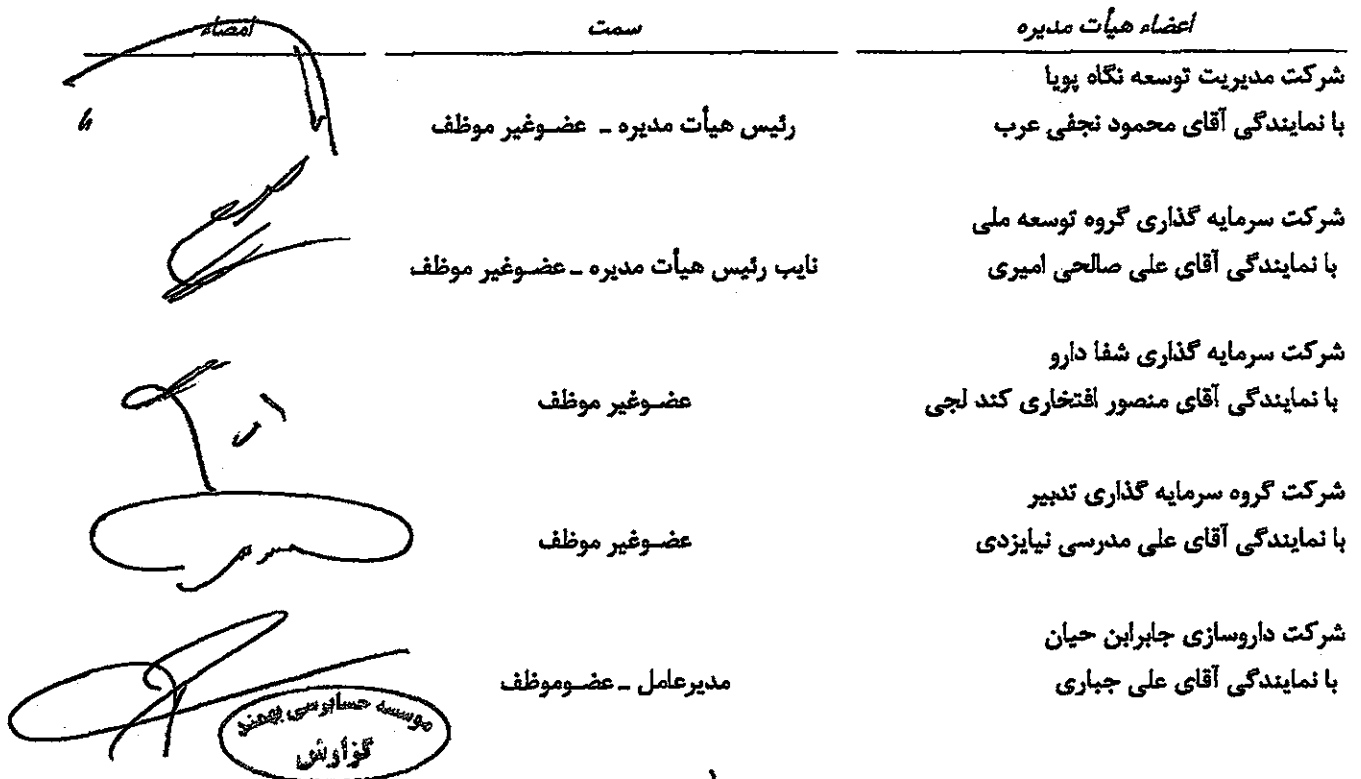 اعضاء هیأت مدیره سمت امضاء
شرکت مدیریت توسعه نگاه پویا
با نمایندگی آقای محمود نجفی عرب رئیس هیأت مدیره ـ عضوغیر موظف
شرکت سرمایه گذاری گروه توسعه ملی
با نمایندگی آقای علی صالحی امیری نایب رئیس هیأت مدیره ـ عضوغیر موظف
شرکت سرمایه گذاری شفا دارو
با نمایندگی آقای منصور افتخاری کند لجی عضوغیر موظف
شرکت گروه سرمایه گذاری تدبیر
با نمایندگی آقای علی مدرسی نیایزدی عضوغیر موظف
شرکت داروسازی جابرابن حیان
با نمایندگی آقای علی جباری مدیرعامل ـ عضوموظف
موسسه حسابرسی بهمند
گزارش
۱